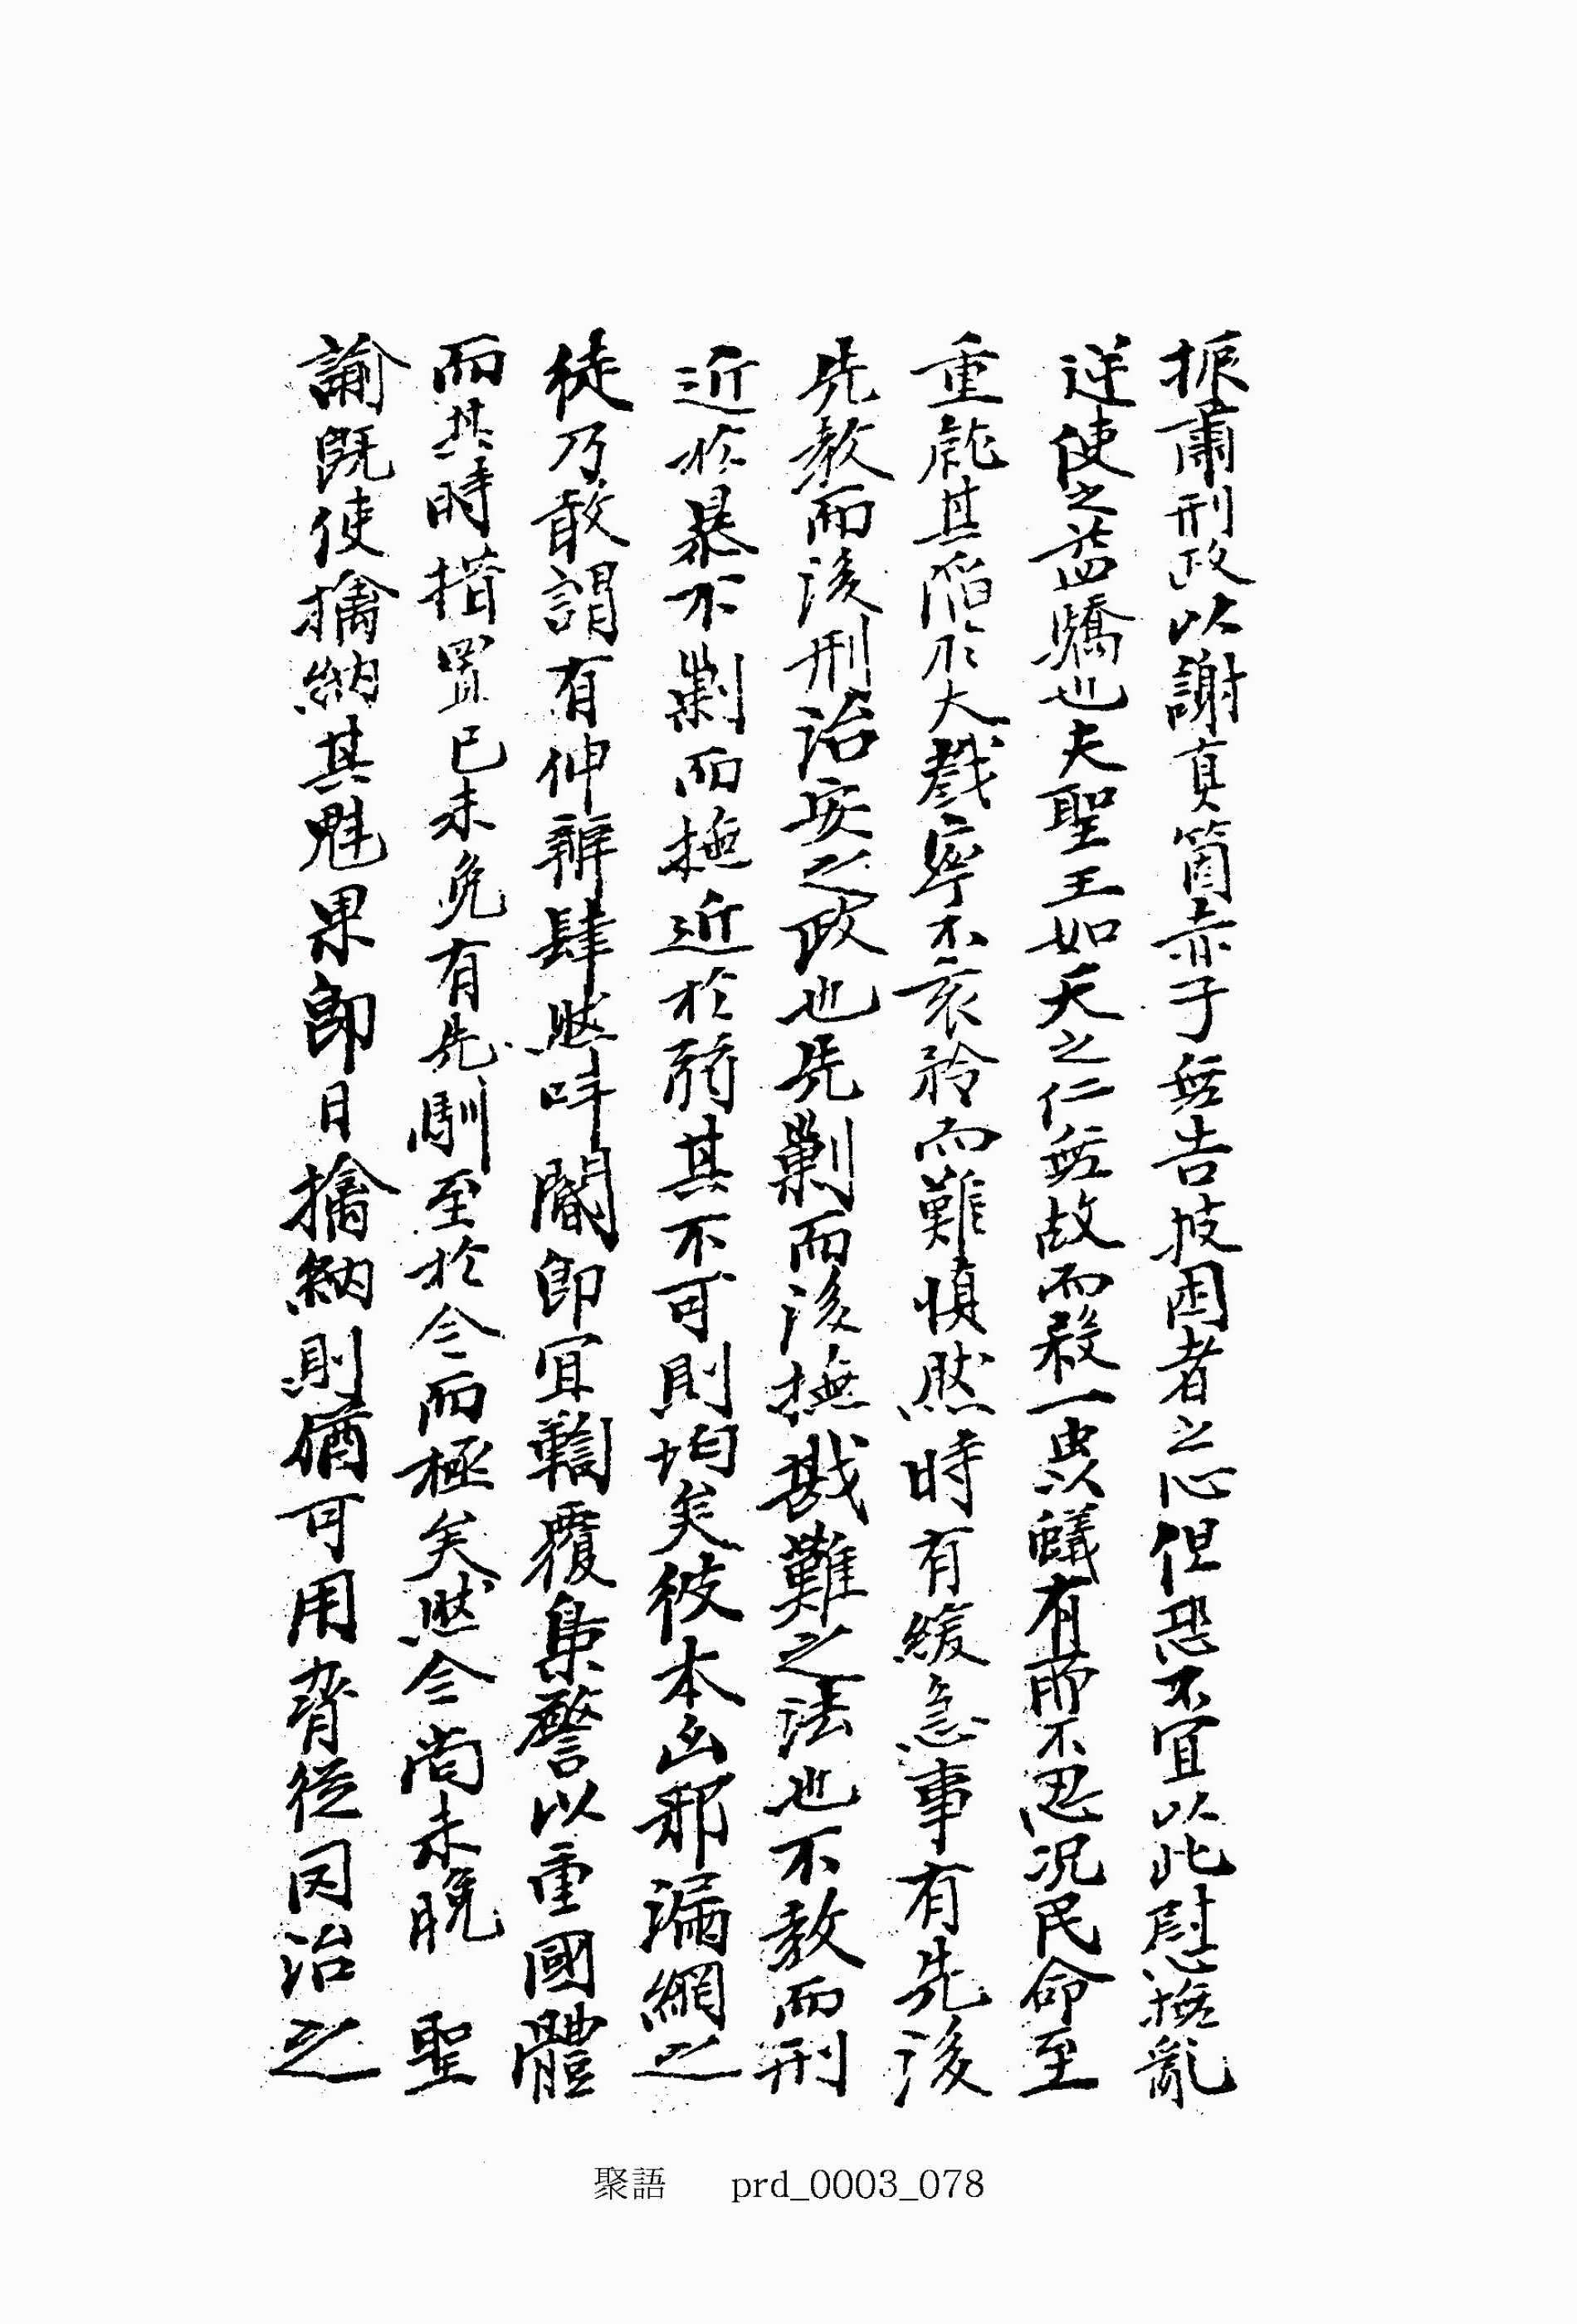 振肅刑政以謝眞箇赤子無告拔困者之心但恐不宜以此慰撫亂
逆使之益驕也夫聖王如天之仁無故而殺一虫以蟻有所不忍況民命至
重毗其陷於大戮寧不哀矜而難愼然時有緩急事有先後
先教而後刑治安之政也先剿而後撫戡難之法也不教而刑
近於暴不剿而撫近於弱其不可則均矣彼本凶邪漏網之
徒乃敢謂有伸辨肆然叫閽卽宜鞫覈梟警以重國體
而其時措置已未免有先馴至於今而極矣然今尙未晩 聖
諭旣使擒納其魁果卽日擒納則猶可用脅從罔治之
聚語 prd_0003_078